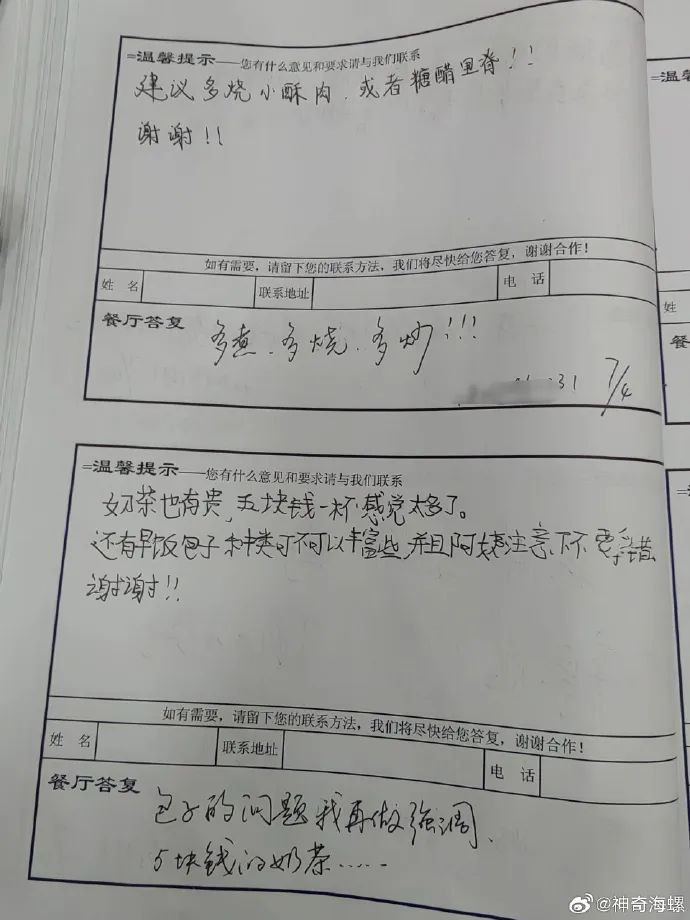 =温馨提示——您有什么意见和要求请与我们联系
建议多烧小酥肉、或者糖醋里脊!!
谢谢!!
如有需要，请留下您的联系方法，我们将尽快给您答复，谢谢合作！
姓 名 联系地址 电 话
餐厅答复
多煮、多烧、多炒!!!
31 7/4
=温馨提示——您有什么意见和要求请与我们联系
奶茶也有贵，五块钱一杯感觉太多了。
还有早饭包子种类可不可以丰富些，并且阿姨注意下不要拿错
谢谢!!
如有需要，请留下您的联系方法，我们将尽快给您答复，谢谢合作！
姓 名 联系地址 电 话
餐厅答复
包子的问题我再做强调、
5块钱的奶茶……
@神奇海螺
姓
餐